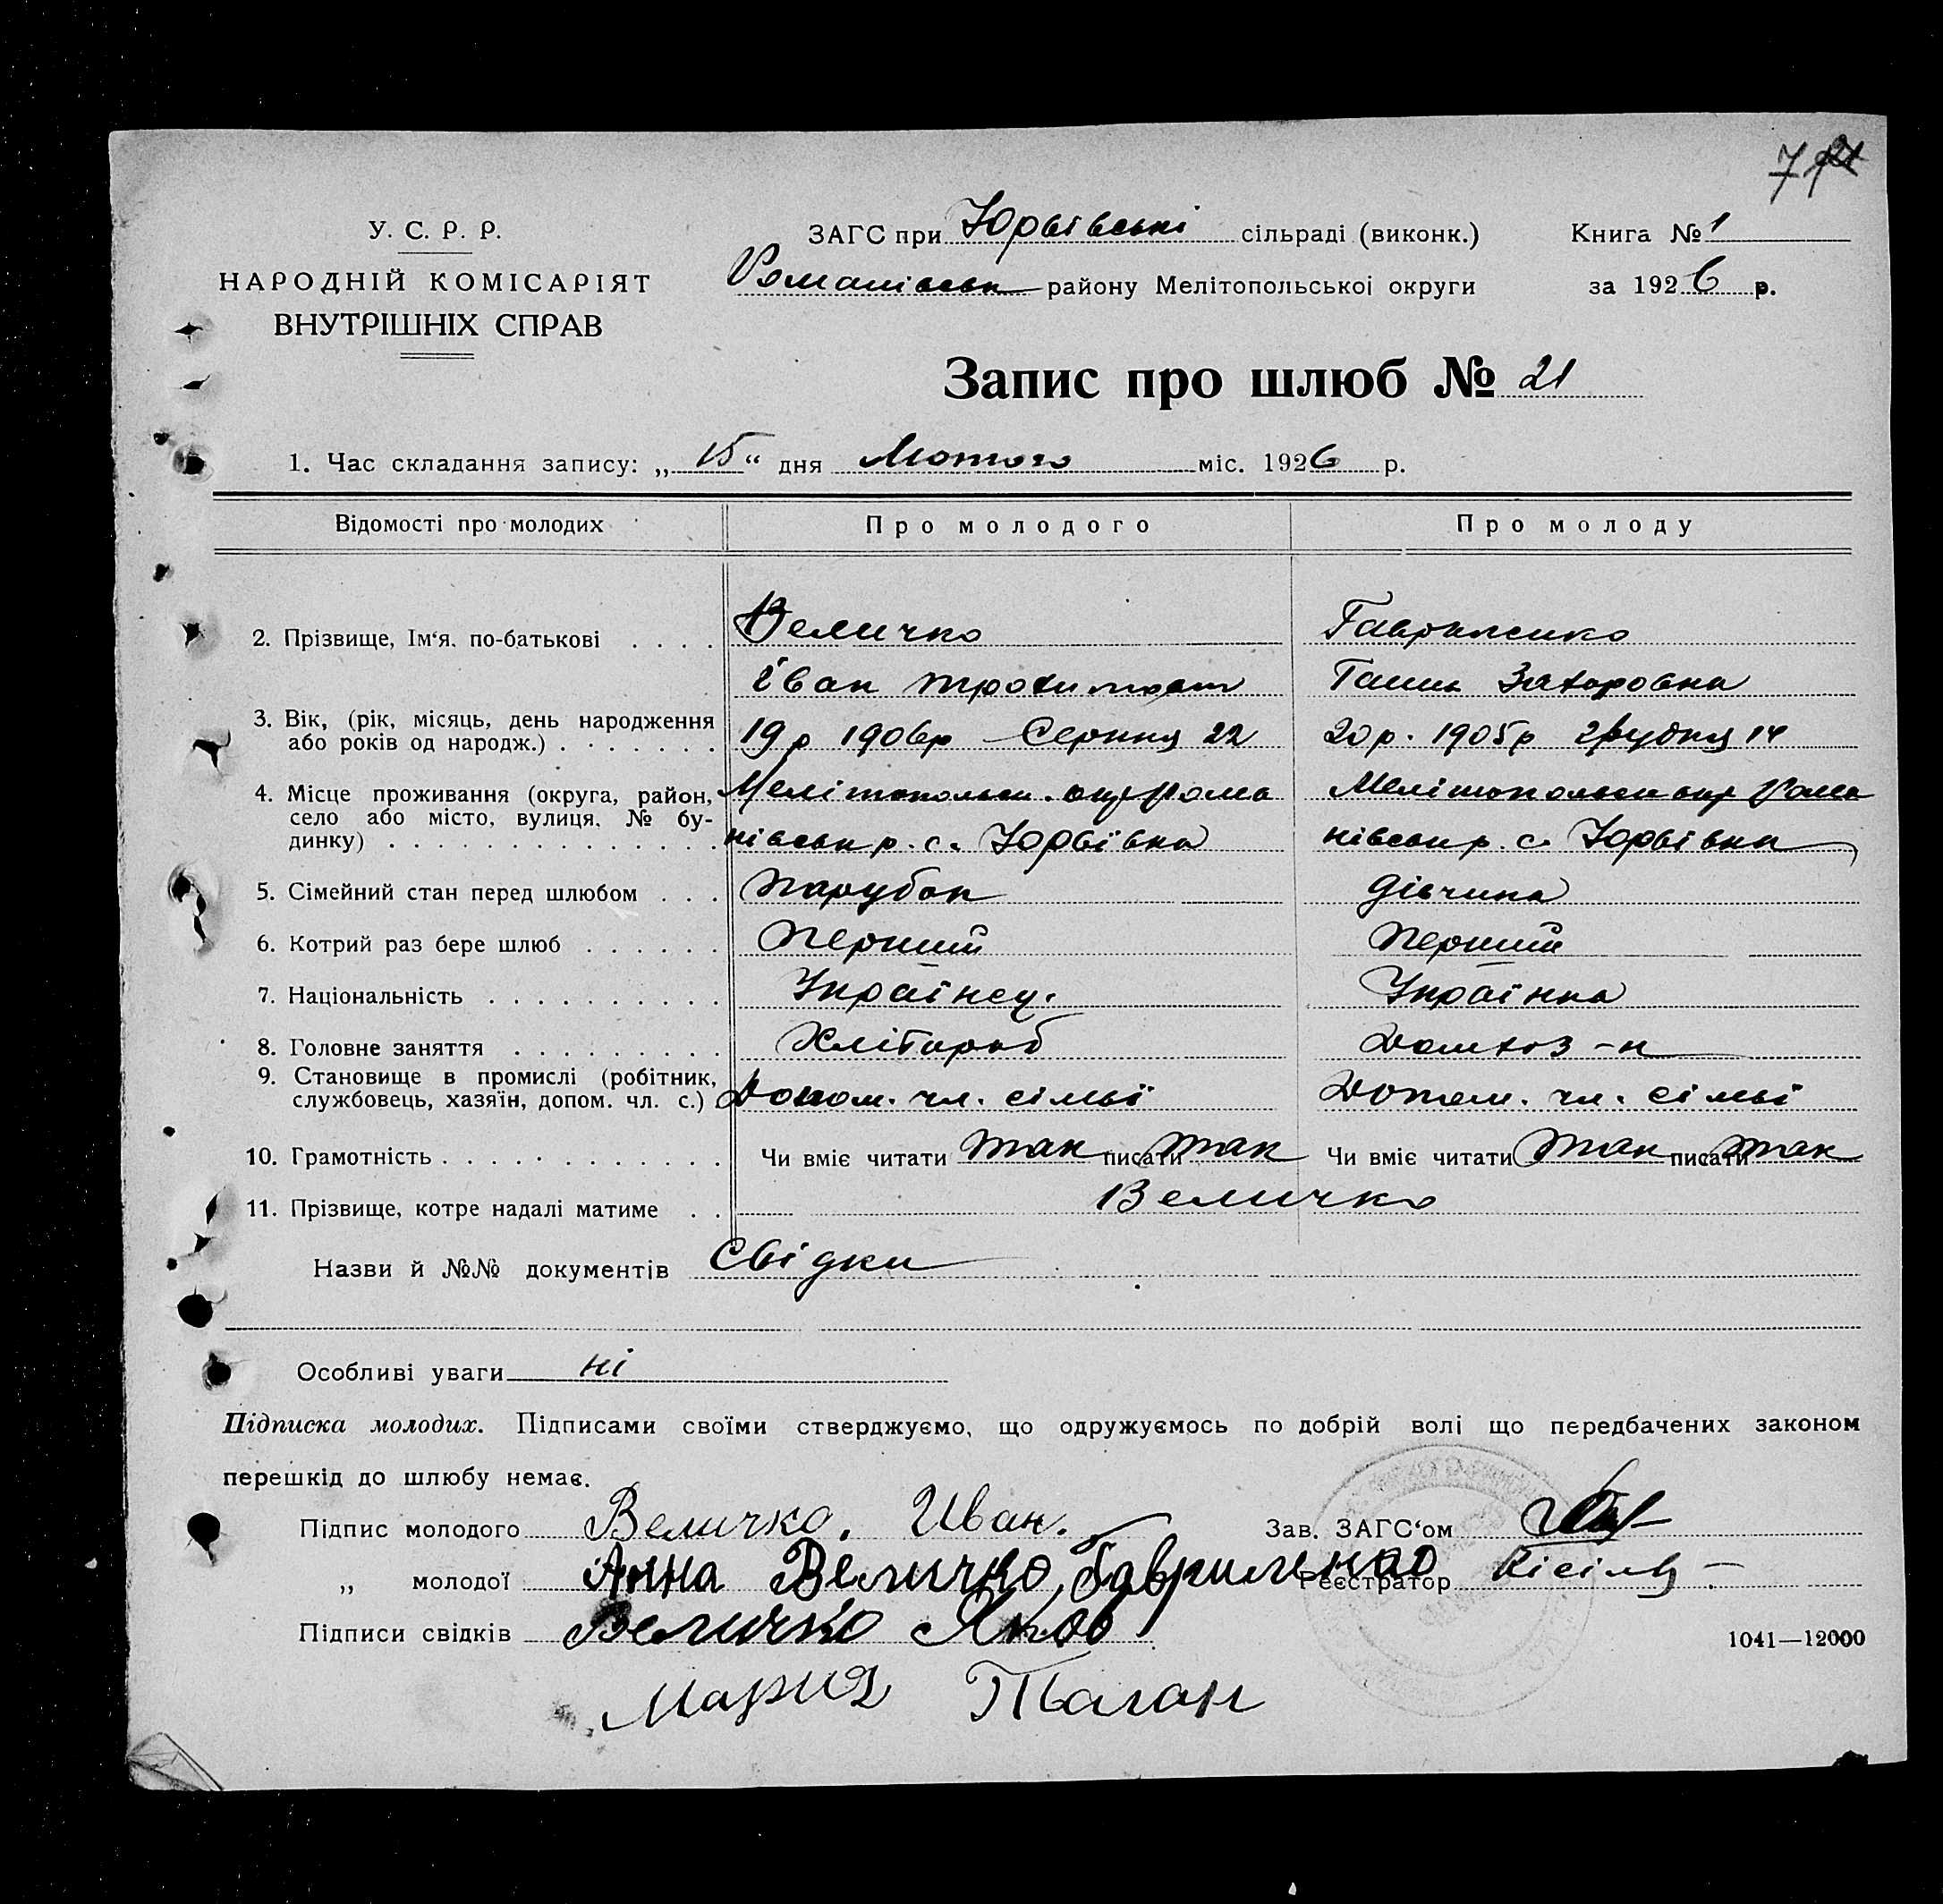 У. С. Р. Р.
НАРОДНІЙ КОМІСАРІЯТ
ВНУТРІШНІХ СПРАВ
ЗАГС при Юрьївські сільраді (виконк.)
Романівськ району Мелітопольської округи
Книга № 1
за 1926 р.
Запис про шлюб № 21
1. Час складання запису: „ 15 “ дня Лютого міс. 1926 р.
Відомості про молодих Про молодого Про молоду
2. Прізвище, Ім‘я, по-батькові . . . . Величко Гавриленко
Іван Ганна Захаровна
3. Вік, (рік, місяць, день народження 19 р 1906р Серпня 22 20 р. 1905р Грудня 14
або років од народж.) . . . . . . .
4. Місце проживання (округа, район, Мелітопольськ. окр Рома Мелітопольськ окр Рома
село або місто, вулиця, № бу- нівськ р. с. Юрьївка нівськ р. с. Юрьївка
динку) . . . . . . . . . . . . . .
5. Сімейний стан перед шлюбом . . . Парубок дівчина
6. Котрий раз бере шлюб . . . . . . Перший Перший
7. Національність . . . . . . . . . . Українец. Українка
8. Головне заняття . . . . . . . . . Хлібороб Домхоз-к
9. Становище в промислі (робітник,
службовець, хазяїн, допом. чл. с.) Допом. чл. сімьї Допом. чл. сімьї
10. Грамотність . . . . . . . . . . . . Чи вміє читати так писати так Чи вміє читати так писати так
11. Прізвище, котре надалі матиме . . Величко
Назви й №№ документів Свідки
Особливі уваги ні
Підписка молодих. Підписами своїми стверджуємо, що одружуємось по добрій волі що передбачених законом
перешкід до шлюбу немає.
Підпис молодого Величко. Иван. Зав. ЗАГС‘ом
„ молодої Анна Величко, Гавриленко Реєстратор Кісіль
Підписи свідків Величко Яков
1041—12000
Мария Таган